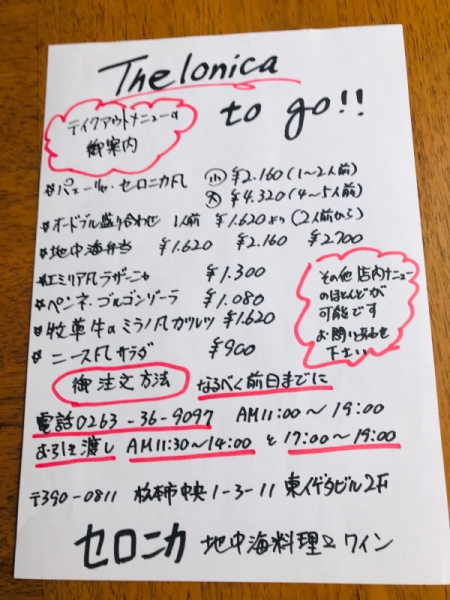 Thelonica
to go!!
テイクアウトメニューの
御案内
☆パエーリャ・セロニカ風 小 ¥2.160(1〜2人前)
大 ¥4.320(4〜5人前)
☆オードブル盛り合わせ 1人前 ¥1.620より(2人前から)
☆地中海弁当 ¥1.620 ¥2.160 ¥2.700
☆エミリア風ラザーニャ ¥1.300
☆ペンネ・ゴルゴンゾーラ ¥1.080
☆牧草牛のミラノ風カツレツ ¥1.620
☆ニース風サラダ ¥900
その他店内メニュー
のほとんどが
可能です
お問い合わせ
下さい
御注文方法 なるべく前日までに
電話0263-36-9097 AM11:00〜19:00
お引き渡し AM11:30〜14:00 と 17:00〜19:00
〒390-0811 松本市中央1-3-11 東イゲタビル2F
セロニカ 地中海料理とワイン